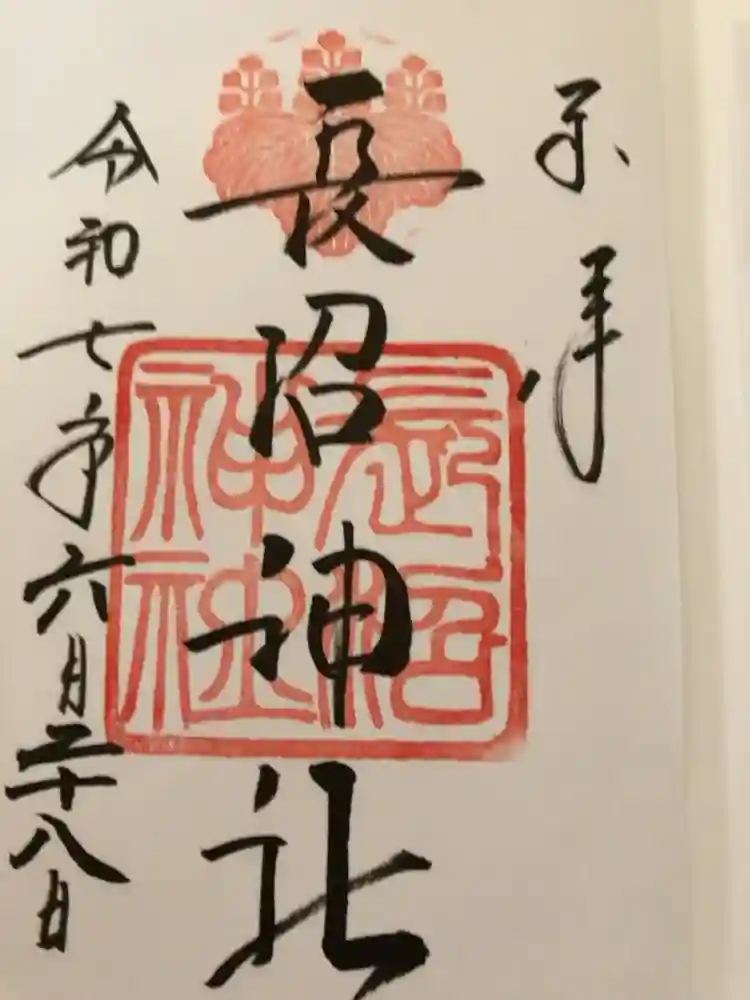 奉拝
長沼神社
長沼神社
令和七年六月二十八日